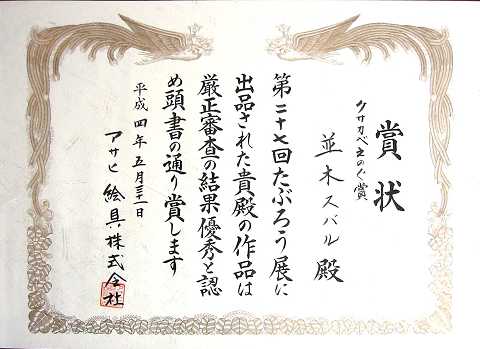 賞状
クサカベえのぐ賞
並木スバル殿
第二十七回たぶろう展に
出品された貴殿の作品は
厳正審査の結果優秀と認
め頭書の通り賞します
平成四年五月三十一日
アサヒ絵具株式会社